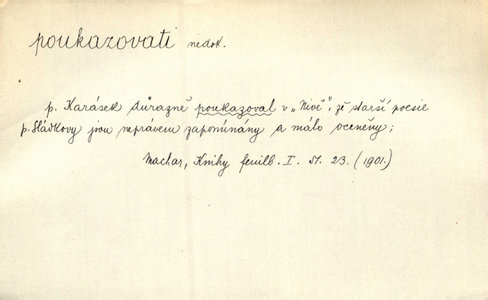 poukazovati nedok.
p. Karásek důrazně poukazoval v „Nivě", že starší poesie
p. Sládkovy jsou neprávem zapomínány a málo oceněny;
Machar, Knihy feuill. I. st. 23. (1901.)